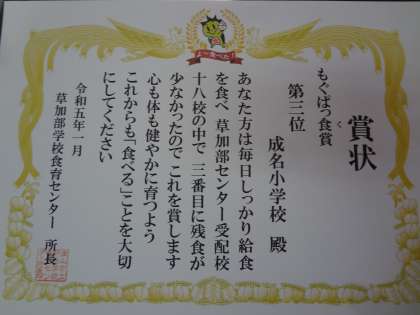 よ〜食べた!
賞状
もぐぱっ食賞
く
第三位
成名小学校 殿
あなた方は毎日しっかり給食
を食べ 草加部センター受配校
十八校の中で 三番目に残食が
少なかったので これを賞します
心も体も健やかに育つよう
これからも「食べる」ことを大切
にしてください
令和五年一月
草加部学校食育センター 所長